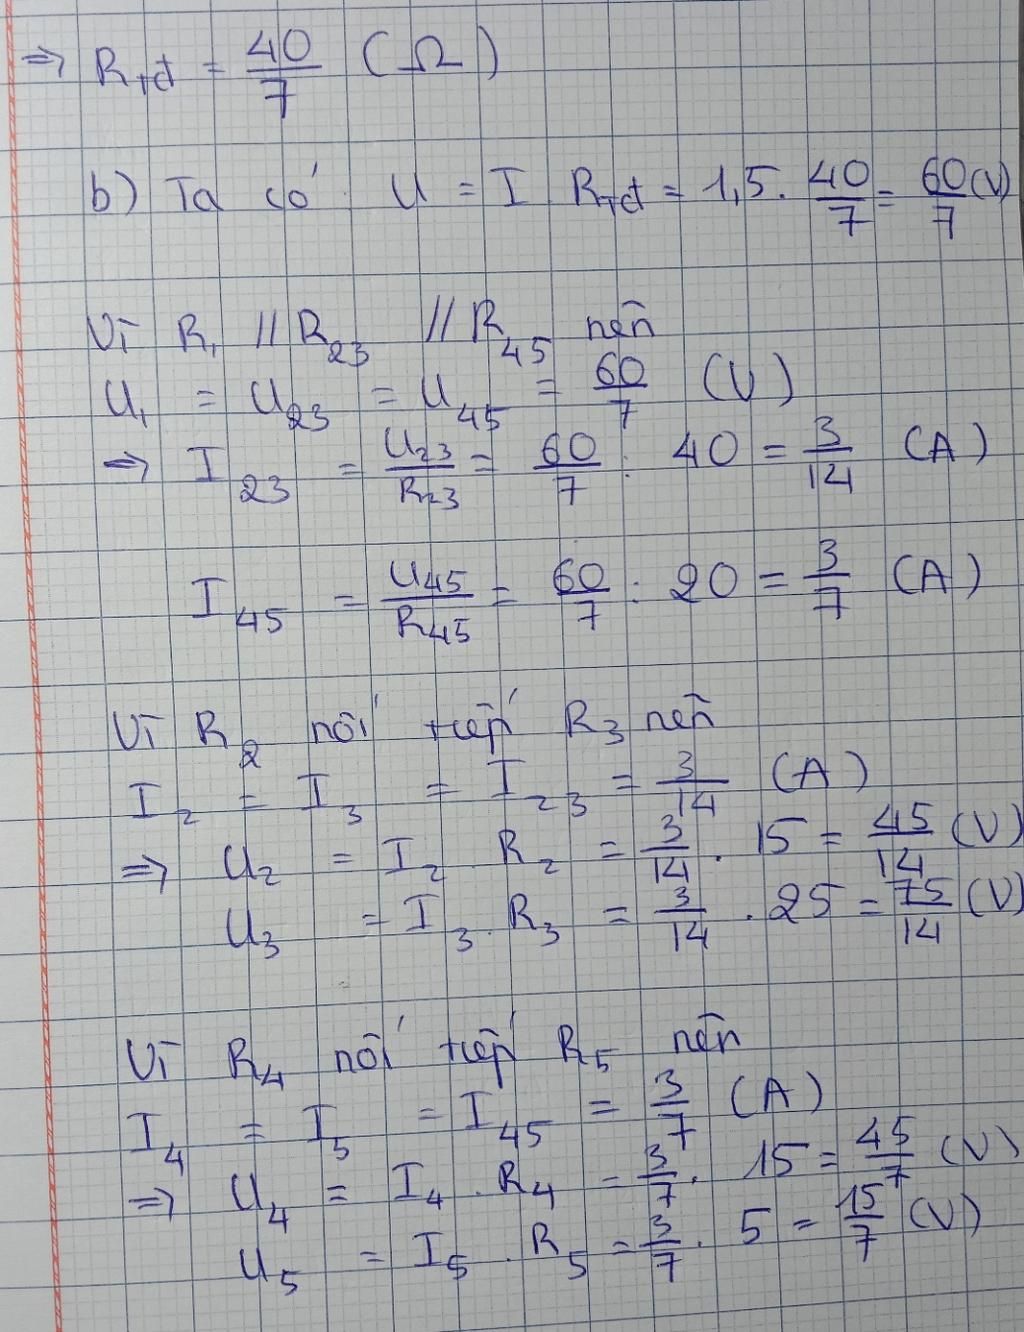 ⇒ Rtđ = 40/7 (Ω)
b) Ta có U = I Rtđ = 1,5. 40/7 = 60/7 (V)
Vì R₁ // R₂₃ // R₄₅ nên
U₁ = U₂₃ = U₄₅ = 60/7 (V)
⇒ I₂₃ = U₂₃/R₂₃ = 60/7 : 40 = 3/14 (A)
I₄₅ = U₄₅/R₄₅ = 60/7 : 20 = 3/7 (A)
Vì R₂ nối tiếp R₃ nên
I₂ = I₃ = I₂₃ = 3/14 (A)
⇒ U₂ = I₂ . R₂ = 3/14 . 15 = 45/14 (V)
U₃ = I₃ . R₃ = 3/14 . 25 = 75/14 (V)
Vì R₄ nối tiếp R₅ nên
I₄ = I₅ = I₄₅ = 3/7 (A)
⇒ U₄ = I₄ . R₄ = 3/7 . 15 = 45/7 (V)
U₅ = I₅ . R₅ = 3/7 . 5 = 15/7 (V)